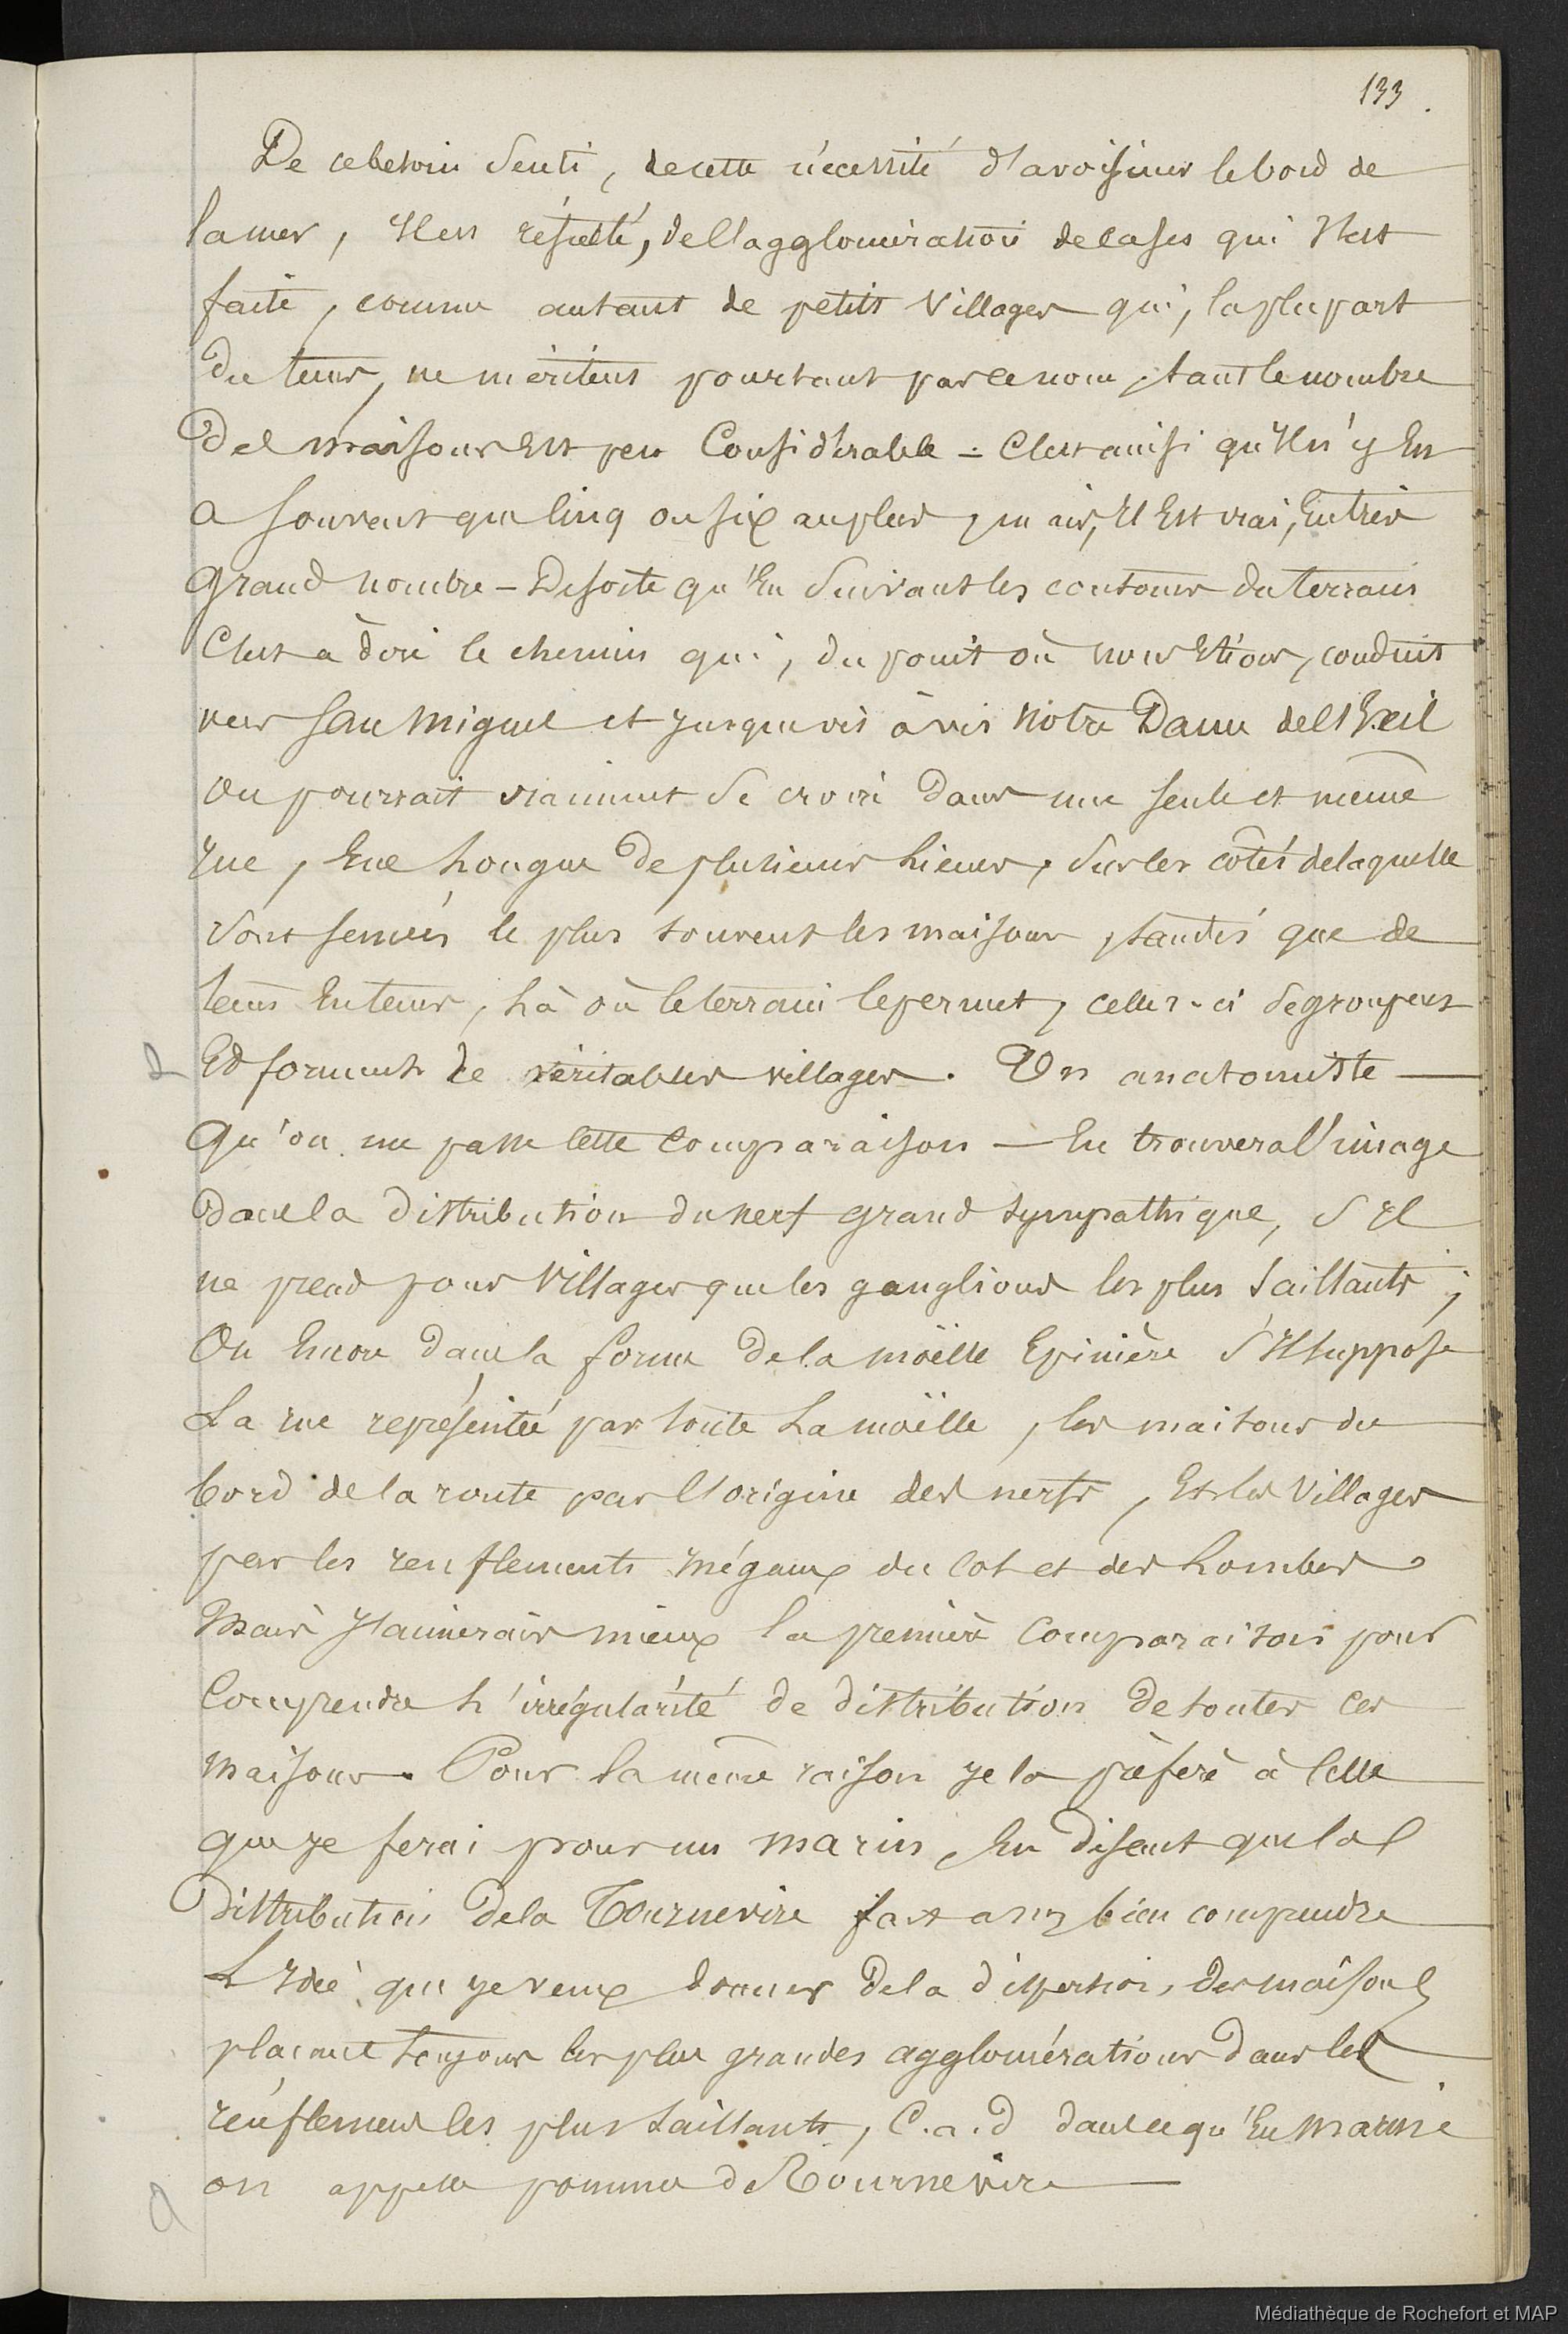 133.
De ce besoin senti, de cette nécessité d'avoisiner le bord de
la mer, Il en résulté, de l'agglomération de cases qui s'est
faite, comme autant de petits villages qui, la plupart
du tems, ne méritent pourtant pas ce nom, tant le nombre
des maisons Est peu Considérable - C'est ainsi qu'Il n'y En
a souvent que cinq ou six au plus, mais, Il Est vrai, En très
grand nombre - De sorte qu'En suivant les contours du terrain
C'est à dire le chemin qui, du point où nous Etions, conduit
vers San Miguel et jusque vis à vis Notre Dame de l'Exil
On pourrait vraiment se croire dans une seule et même
rue, Rue longue de plusieurs lieues, sur les côtés de laquelle
sont semées le plus souvent les maisons, tandis que de
tems En tems, là où le terrain le permet, celles-ci se groupent
Et forment de véritables villages. Un anatomiste —
Qu'on me passe cette comparaison — En trouvera l'image
dans la distribution du nerf grand sympathique, s'Il
ne prend pour Villages que les ganglions les plus saillants ;
Ou Encore dans la forme de la moëlle Epinière s'Il suppose
La rue représentée par toute La moëlle, les maisons du
bord de la route par l'origine des nerfs, Et les Villages
par les renflements inégaux du col et des Lombes
Mais J'aimerais mieux la première comparaison pour
Comprendre l'irrégularité de distribution de toutes ces
maisons. Pour la même raison je la préfère à celle
que je ferai pour un marin, En disant que la
Distribution de la Tournevire fait assez bien comprendre
L'Idée que je veux donner de la dispersion, des maisons
plaçant toujours les plus grandes agglomérations dans les
renflemens les plus saillants, C.a.d dans ce qu'En marine
on appelle pomme de Tournevire —
Médiathèque de Rochefort et MAP